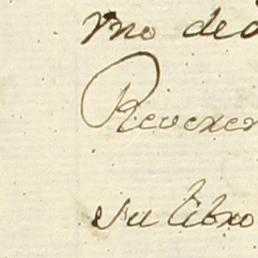 mo de
Reveren
su libro